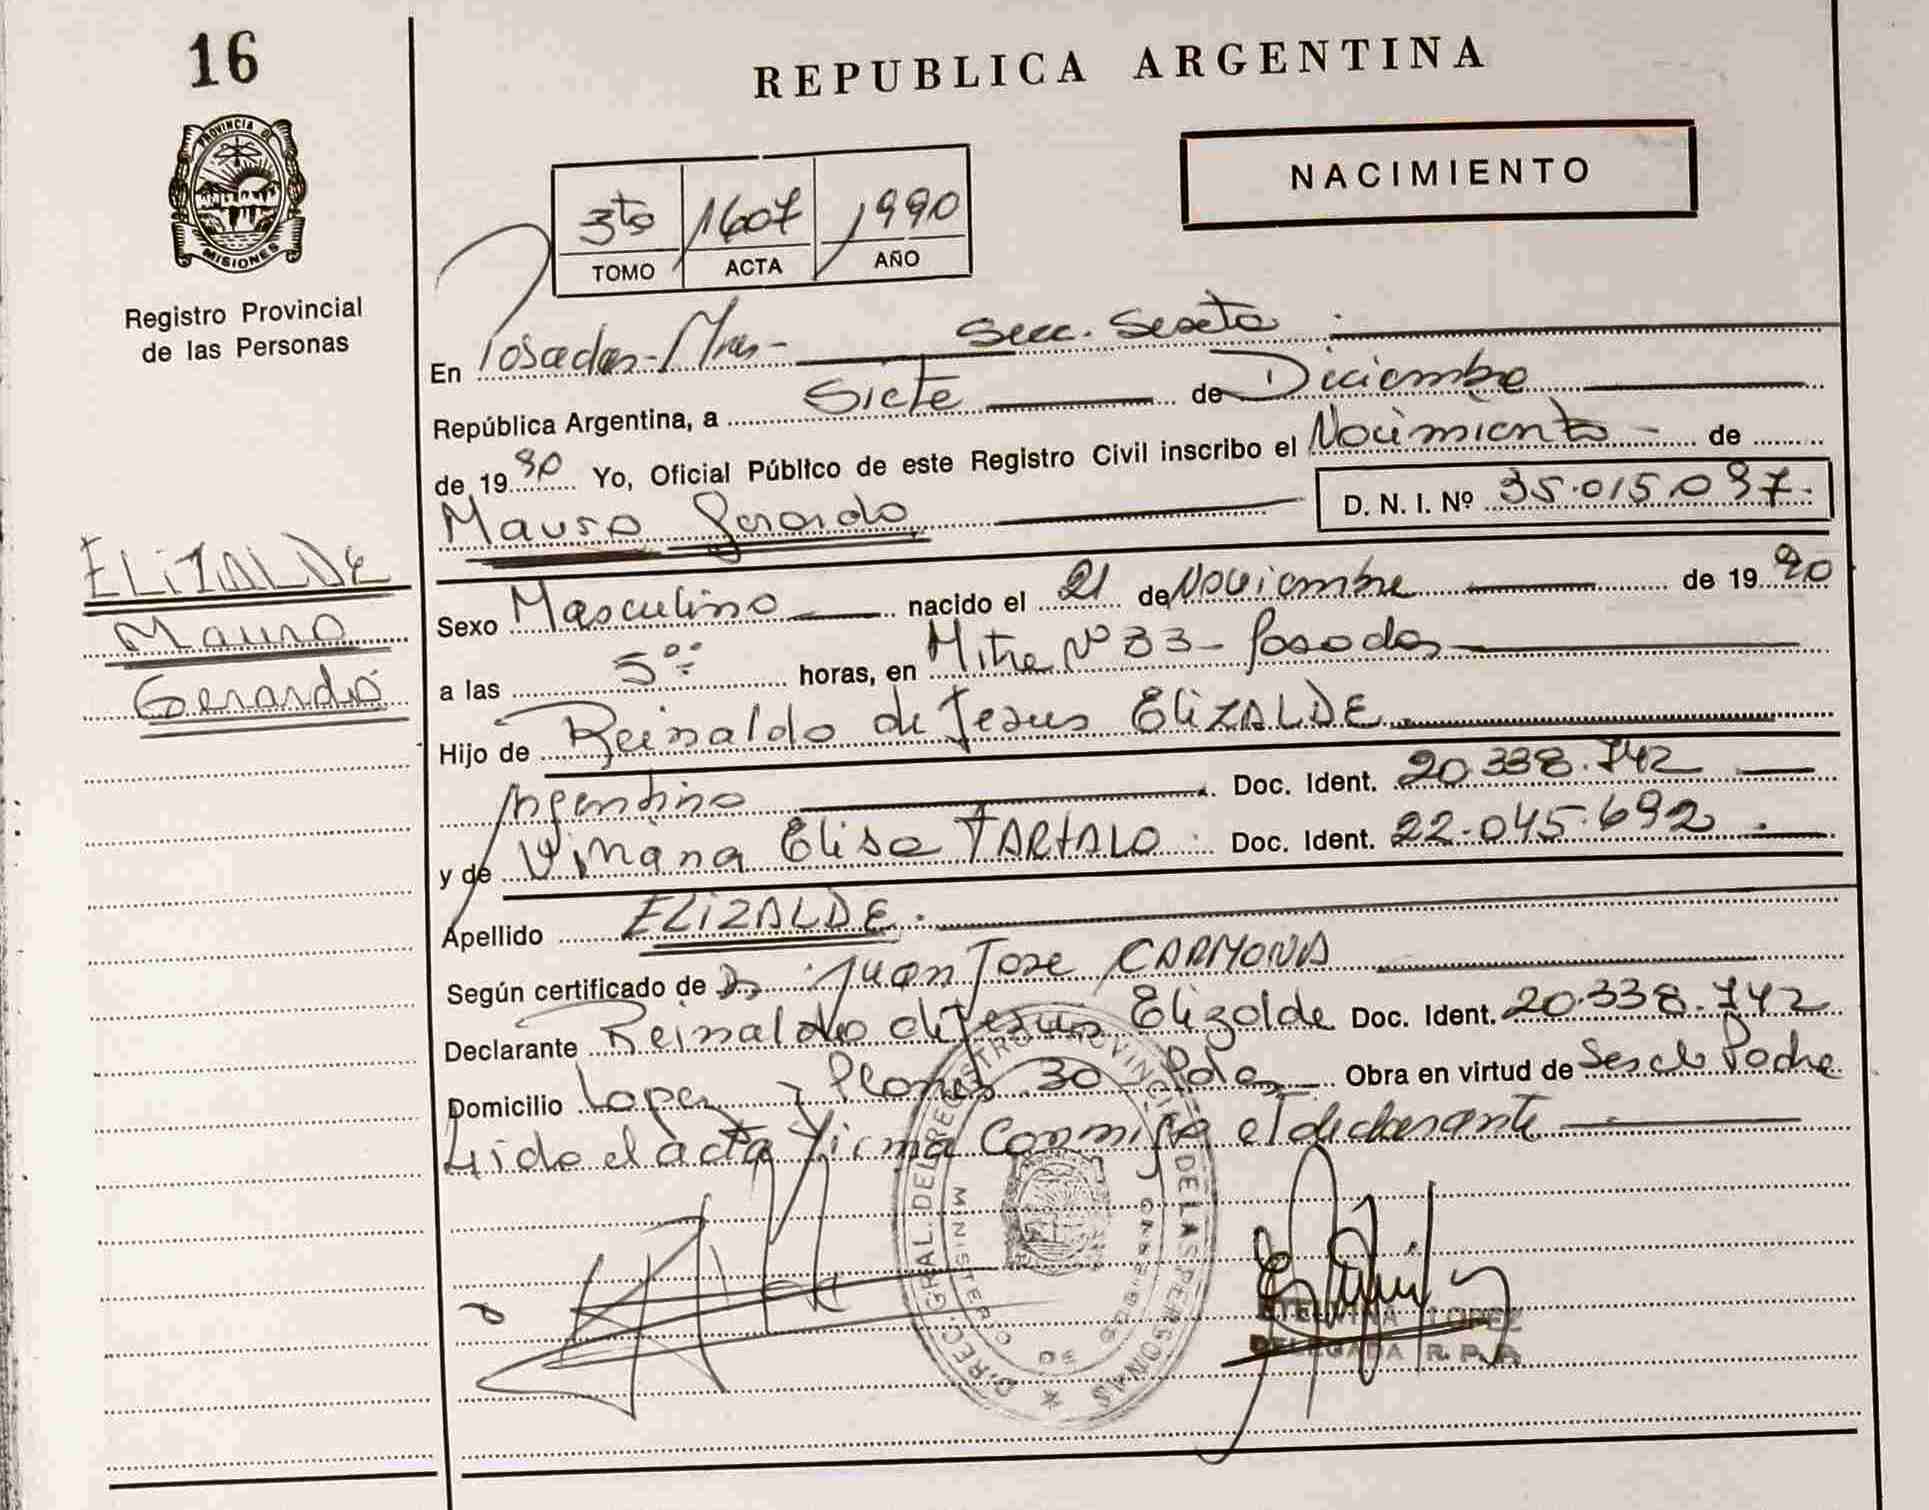 16
PROVINCIA DE
MISIONES
Registro Provincial
de las Personas
ELIZALDE
Mauro
Gerardo
REPUBLICA ARGENTINA
NACIMIENTO
3ro 1607 1990
TOMO ACTA AÑO
En Posadas-Mnes- Secc. Sexta
República Argentina, a Siete de Diciembre
de 1990 Yo, Oficial Público de este Registro Civil inscribo el Nacimiento de
Mauro Gerardo D. N. I. Nº 35.015.097.
Sexo Masculino nacido el 21 de Noviembre de 1990
a las 5 horas, en Mitre Nº 33- Posadas
Hijo de Reinaldo de Jesus ELIZALDE
Argentino Doc. Ident. 20.338.742
y de Viviana Elisa TARTALO Doc. Ident. 22.045.692
Apellido ELIZALDE.
Según certificado de Dr Juan Jose CARMONA
Declarante Reinaldo de Jesus Elizalde Doc. Ident. 20.338.742
Domicilio Lopez y Planes 30 Pdas Obra en virtud de Ser el Padre
Leida el acta firma conmigo el declarante
DIREC. GRAL. DEL REGISTRO PROVINCIAL DE LAS PERSONAS
MINISTERIO DE GOBIERNO
ETELVINA LOPEZ
DELEGADA R. P. P.